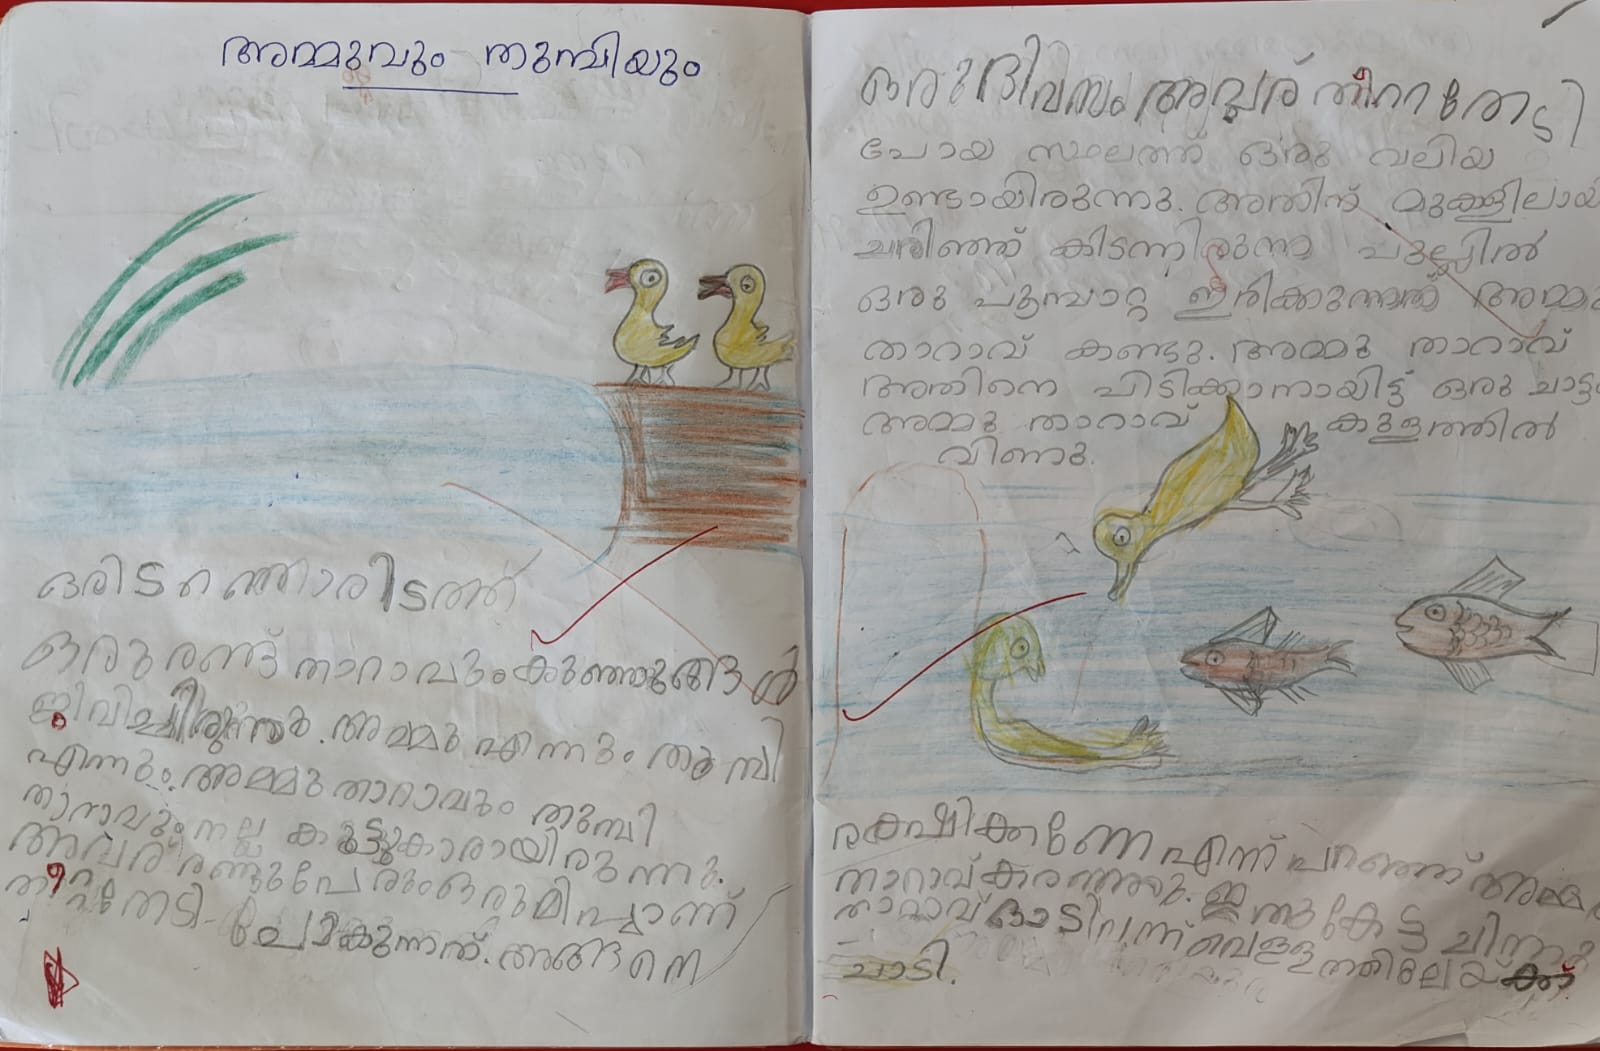 അമ്മുവും തുമ്പിയും
ഒരിടത്തൊരിടത്ത്
ഒരു രണ്ട് താറാവുംകുഞ്ഞുങ്ങൾ
ജീവിച്ചിരുന്നു. അമ്മു എന്നും തുമ്പി
എന്നും. അമ്മു താറാവും തുമ്പി
താറാവും നല്ല കൂട്ടുകാരായിരുന്നു.
അവര് രണ്ടുപേരും ഒരുമിച്ചാണ്
തീറ്റതേടി പോകുന്നത്. അങ്ങനെ
ഒരു ദിവസം അവര് തീററ തേടി
പോയ സ്ഥലത്ത് ഒരു വലിയ
ഉണ്ടായിരുന്നു. അതിന് മുകളിലായി
ചരിഞ്ഞ് കിടന്നിരുന്ന പുല്ലിൽ
ഒരു പൂമ്പാറ്റ ഇരിക്കുന്നത് അമ്മു
താറാവ് കണ്ടു. അമ്മു താറാവ്
അതിനെ പിടിക്കാനായിട്ട് ഒരു ചാട്ടം
അമ്മു താറാവ് കുളത്തിൽ
വീണു.
രക്ഷിക്കണേ എന്ന് പറഞ്ഞ് അമ്മു
താറാവ് കരഞ്ഞു. ഇതുകേട്ട
താറാവ് ഓടിവന്ന് വെള്ളത്തിലേയ്ക്ക്
ചാടി.